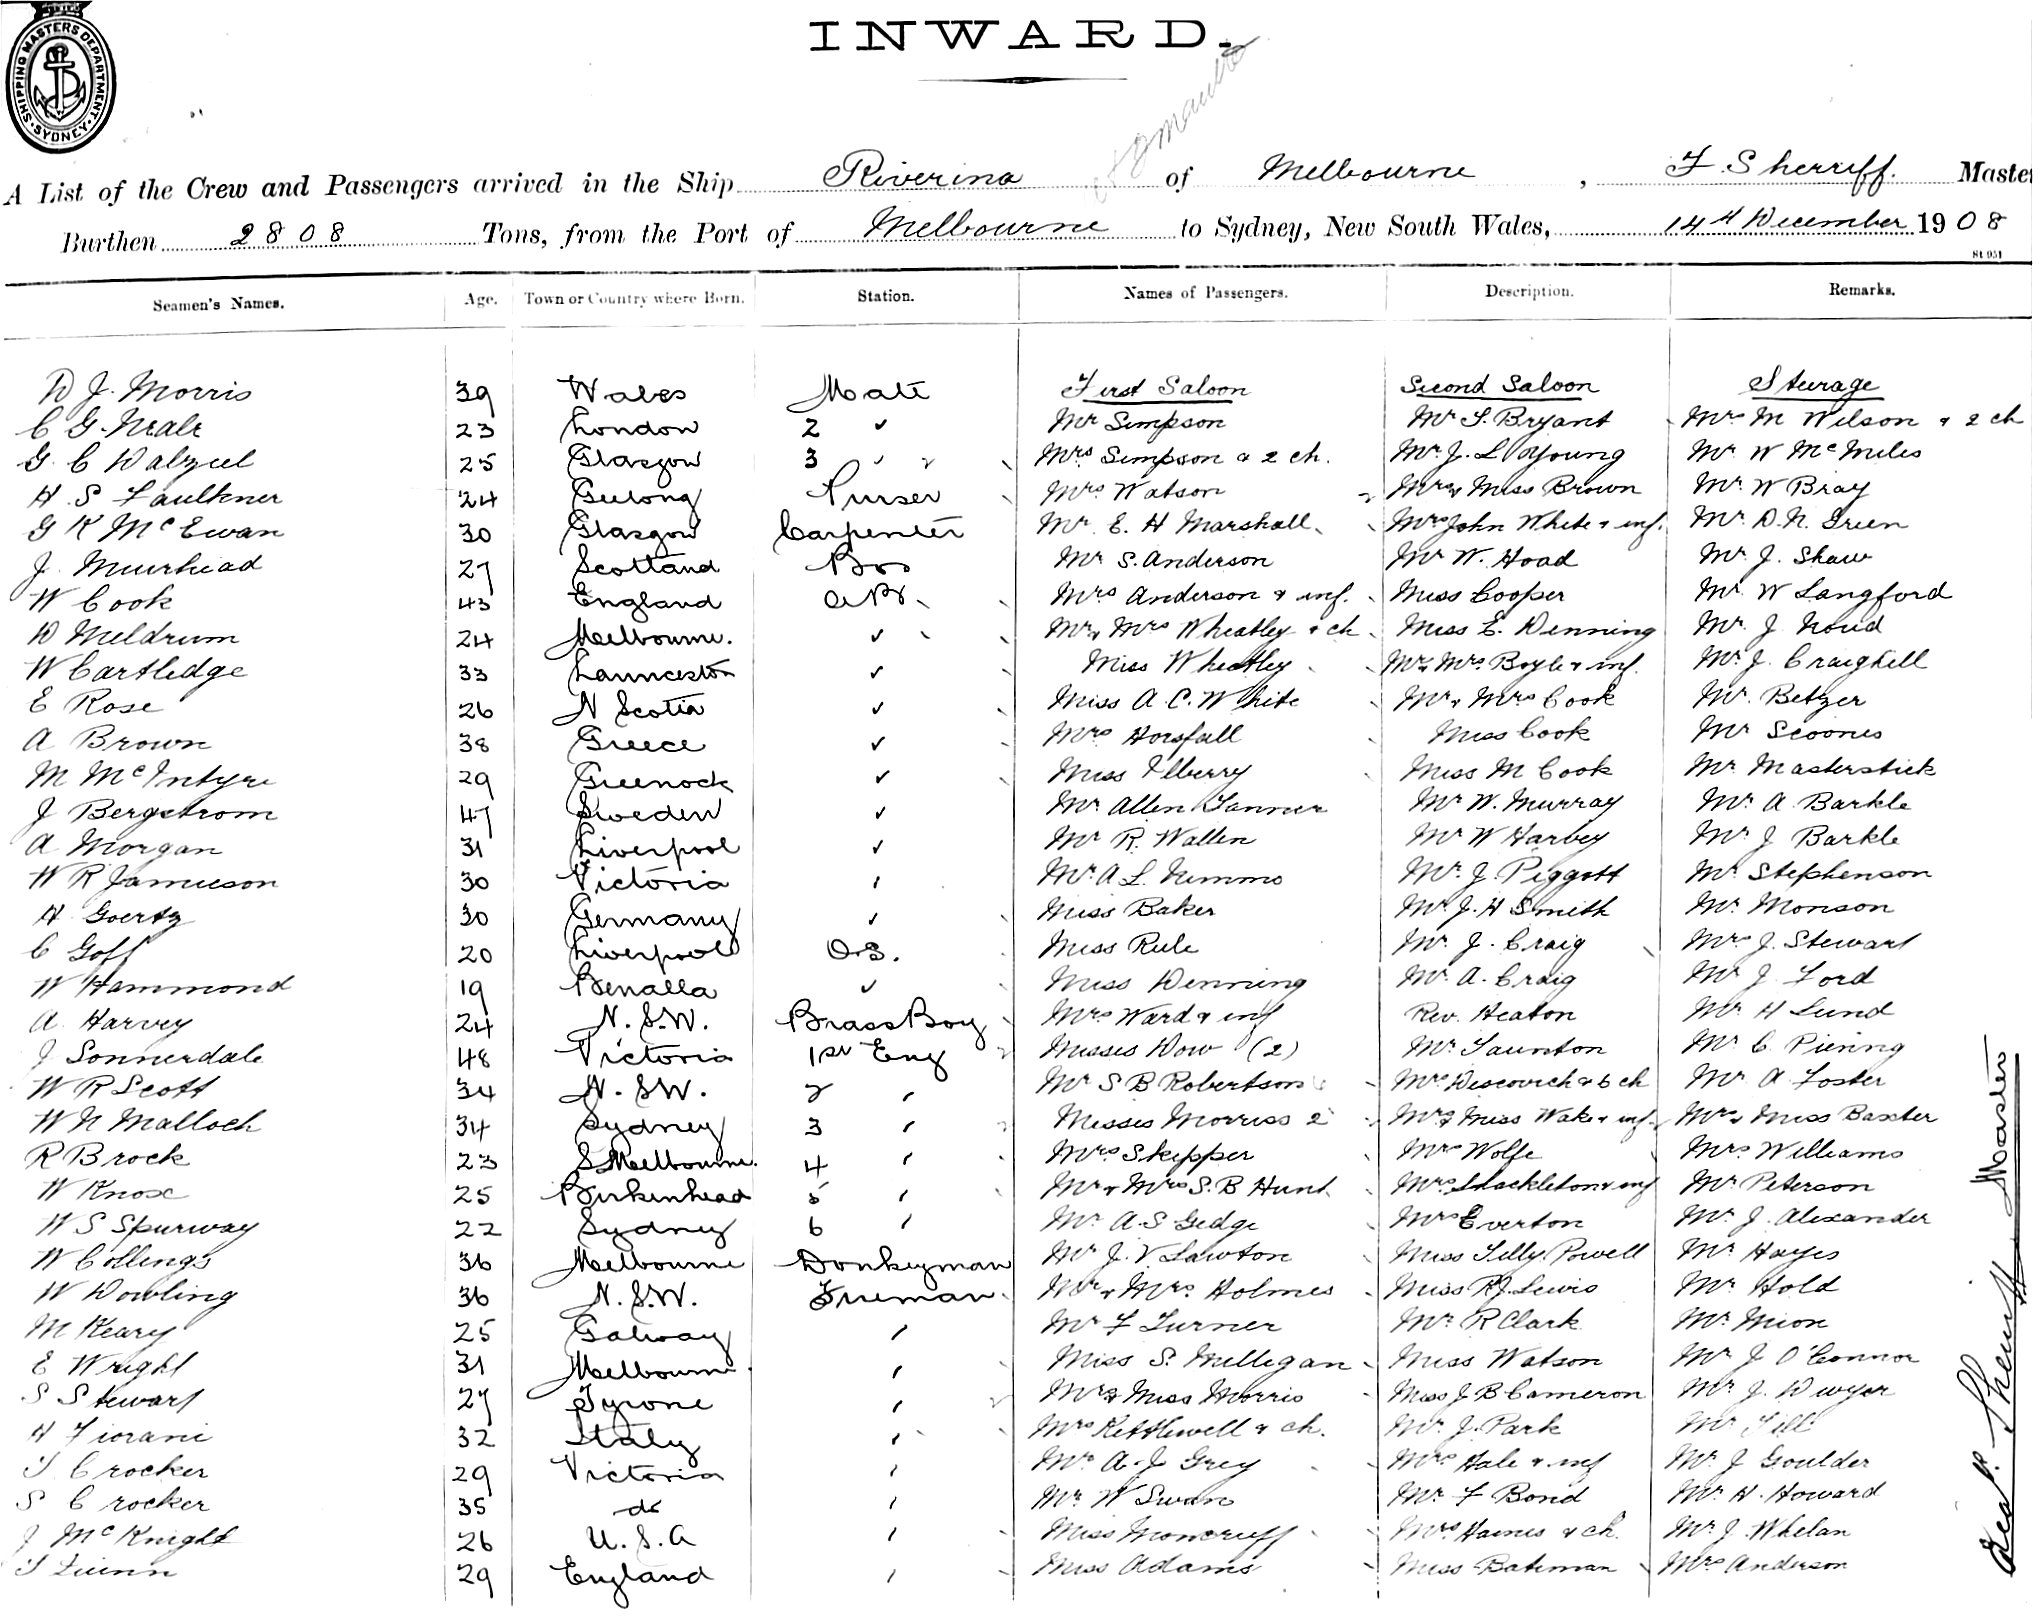 SHIPPING MASTERS DEPARTMENT. SYDNEY.
INWARD.
A List of the Crew and Passengers arrived in the Ship Riverina of Melbourne, F. Sherriff. Master
Burthen 2808 Tons, from the Port of Melbourne to Sydney, New South Wales, 14th December 1908
St 951
Seamen's Names. Age. Town or Country where Born. Station. Names of Passengers. Description. Remarks.
D J. Morris 39 Wales Mate First Saloon Second Saloon Steerage
C G. Neale 23 London 2 ✓ Mr Simpson Mr T. Bryant Mrs M Wilson & 2 ch
G. C Dalziel 25 Glasgow 3 " Mrs Simpson & 2 ch. Mr. J. L Young Mr W McMiles
H. S Faulkner 24 Geelong Purser Mrs Watson Mrs & Miss Brown Mr W Bray
G K McEwan 30 Glasgow Carpenter Mr E. H Marshall Mrs John White & inf. Mr D. N. Green
J. Muirhead 27 Scotland Bos Mr S. Anderson Mr W. Hoad Mr J. Shaw
W Cook 43 England AB. Mrs Anderson & inf. Miss Cooper Mr W Langford
D Meldrum 24 Melbourne. ✓ Mr & Mrs Wheatley & ch Miss E. Denning Mr J Noud
W Cartledge 33 Launceston ✓ Miss Wheatley Mr & Mrs Boyle & inf. Mr J. Craighill
E Rose 26 N Scotia ✓ Miss A. C. White Mr & Mrs Cook Mr. Betzer
A Brown 38 Greece ✓ Mrs Horsfall Miss Cook Mr Scoones
M McIntyre 29 Greenock ✓ Miss Ilberry Miss M Cook Mr Masterstick
J Bergstrom 47 Sweden ✓ Mr Allen Tanner Mr W. Murray Mr A. Barkle
A Morgan 31 Liverpool ✓ Mr R. Wallen Mr W Harvey Mr J Barkle
W R Jamieson 30 Victoria ' Mr A L. Nimmo Mr. J. Piggott Mr Stephenson
H Goertz 30 Germany ✓ Miss Baker Mr J. H Smith Mr. Monson
C Goff 20 Liverpool O.S. Miss Rule Mr. J. Craig Mrs J. Stewart
W Hammond 19 Benalla ✓ Miss Denning Mr. A. Craig Mr J. Ford
A. Harvey 24 N. S.W. Brass Boy Mrs Ward & inf Rev. Heaton Mr H Lund
J Sonnerdale 48 Victoria 1st Eng Misses Dow (2) Mr Taunton Mr C Piening
W R Scott 34 N. S.W. 2 ' Mr S B Robertson Mrs Descovich & 6 ch Mr A Foster
W N Malloch 34 Sydney 3 ' Misses Morriss 2 Mrs & Miss Wake & inf. Mrs & Miss Baxter
R Brock 23 S Melbourne. 4 ' Mrs Skipper Mrs Wolfe Mrs Williams
W Knox 25 Birkenhead 5 ' Mr & Mrs S. B Hunt Mrs Shackleton & inf Mr Peterson
W S Spurway 22 Sydney 6 ' Mr A. S Gedge Mrs Everton Mr J. Alexander
W Collings 36 Melbourne Donkeyman Mr J. V Lawton Miss Tilly Powell Mr Hayes
W Dowling 36 N. S.W. Fireman Mr & Mrs Holmes Miss R J Lewis Mr Hold
M Keary 25 Galway ' Mr F Turner Mr R Clark Mr Mion
E Wright 31 Melbourne ' Miss S. Milligan Miss Watson Mr J O'Connor
S Stewart 27 Tyrone ' Mrs & Miss Morris Miss J B Cameron Mr J. Dwyer
H Fiorani 32 Italy ' Mrs Kettlewell & ch. Mr J. Park Mr Till
T Crocker 29 Victoria ' Mr A. J Grey Mrs Hale & inf Mr J Goulder
S Crocker 35 do ' Mr W Swan Mr F Bond Mr H. Howard
J McKnight 26 U. S. A ' Miss Moncrieff Mrs Haines & ch. Mr J. Whelan
T Quinn 29 England ' Miss Adams Miss Bateman Mrs Anderson
Sherriff Master